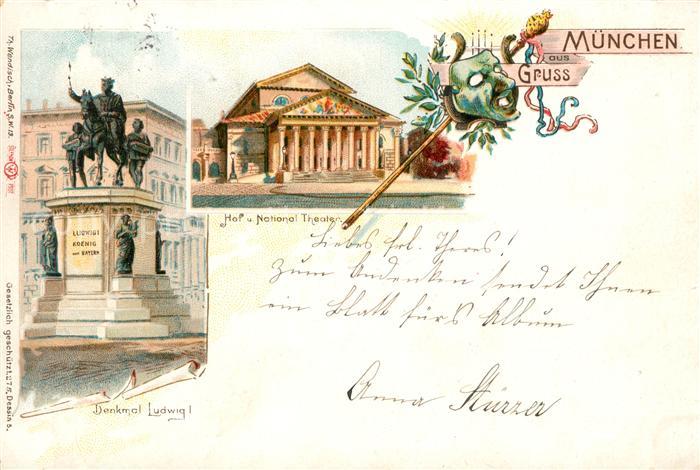 MÜNCHEN.
aus
Gruss
Hof u. National Theater.
LUDWIG I
KOENIG
VON BAYERN
Denkmal Ludwig I
Th. Wendisch, Berlin, S.W. 13.
Gesetzlich geschützt. 275, Dessin 3.
Liebes frl. Theres!
Zum Andenken sendet Ihnen
ein Blatt fürs Album
Anna Stürzer